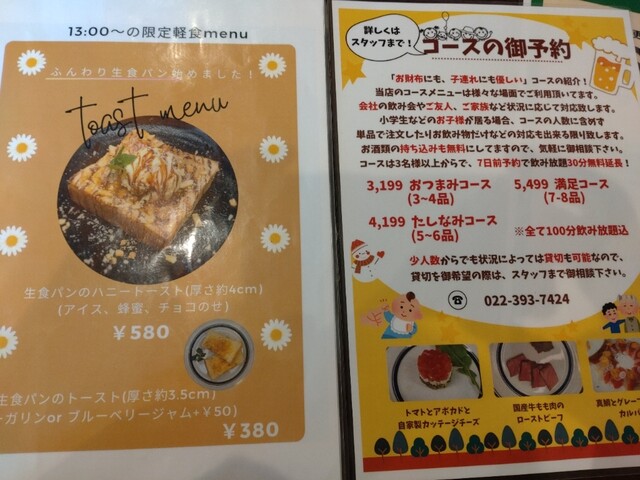 13:00～の限定軽食menu
ふんわり生食パン始めました！
toast menu
生食パンのハニートースト(厚さ約4cm)
(アイス、蜂蜜、チョコのせ)
￥580
生食パンのトースト(厚さ約3.5cm)
ーガリンor ブルーベリージャム+￥50)
￥380
詳しくは
スタッフまで！
コースの御予約
「お財布にも、子連れにも優しい」コースの紹介！
当店のコースメニューは様々な場面でご利用頂いてます。
会社の飲み会やご友人、ご家族など状況に応じて対応致します。
小学生などのお子様が居る場合、コースの人数に含めず
単品で注文したりお飲み物だけなどの対応も出来る限り致します。
お酒類の持ち込みも無料にしてますので、気軽に御相談下さい。
コースは3名様以上からで、7日前予約で飲み放題30分無料延長！
3,199 おつまみコース
(3~4品)
5,499 満足コース
(7-8品)
4,199 たしなみコース
(5~6品)
※全て100分飲み放題込
少人数からでも状況によっては貸切も可能なので、
貸切を御希望の際は、スタッフまで御相談下さい。
022-393-7424
トマトとアボカドと
自家製カッテージチーズ
国産牛もも肉の
ローストビーフ
真鯛とグレープ
カルパ